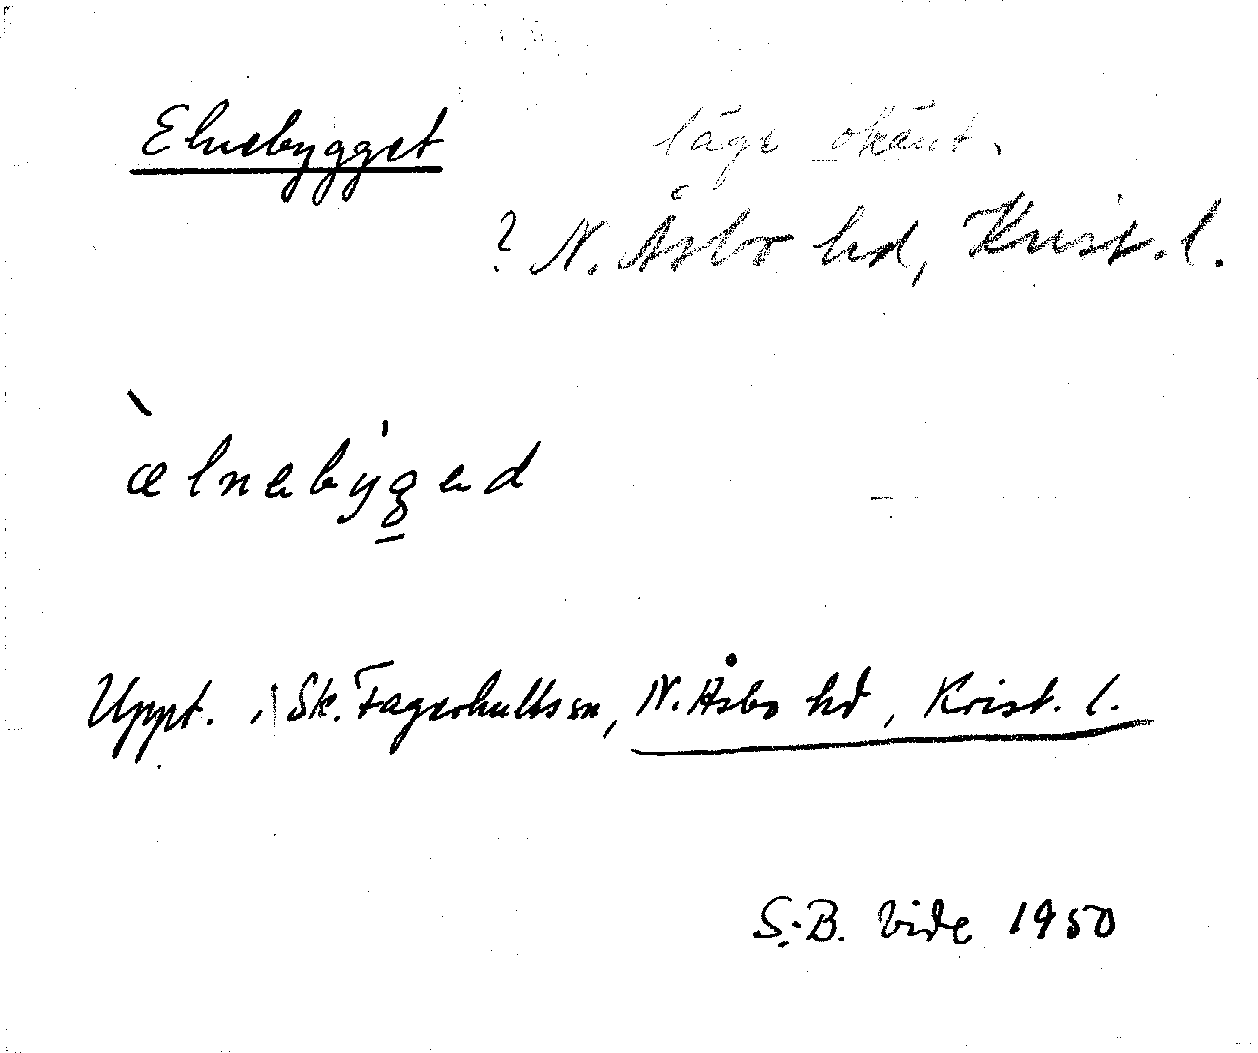 Elnebygget
läge okänt.
? N. Åsbo hd, Krist. l.
ælnebyged
Uppt. i Sk. Fagerhults sn, N. Åsbo hd, Krist. l.
S.-B. Vide 1950